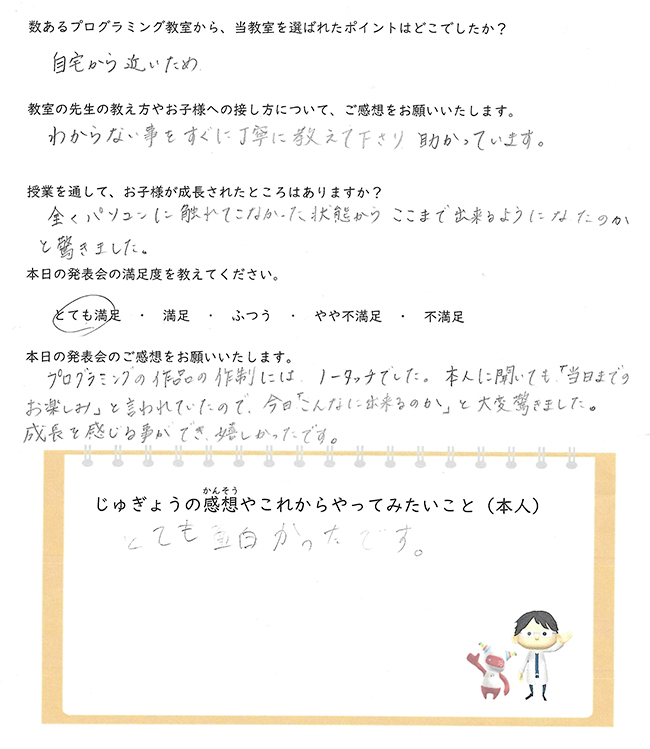 数あるプログラミング教室から、当教室を選ばれたポイントはどこでしたか？
自宅から近いため
教室の先生の教え方やお子様への接し方について、ご感想をお願いいたします。
わからない事をすぐに丁寧に教えて下さり 助かっています。
授業を通して、お子様が成長されたところはありますか？
全くパソコンに触れてこなかった状態から ここまで出来るようになたのか
と驚きました。
本日の発表会の満足度を教えてください。
とても満足 ・ 満足 ・ ふつう ・ やや不満足 ・ 不満足
本日の発表会のご感想をお願いいたします。
プログラミングの作品の作制には、ノータッチでした。本人に聞いても、「当日までの
お楽しみ」と言われていたので、今日「こんなに出来るのか」と大変驚きました。
成長を感じる事ができ、嬉しかったです。
かんそう
じゅぎょうの感想やこれからやってみたいこと（本人）
とても面白かったです。